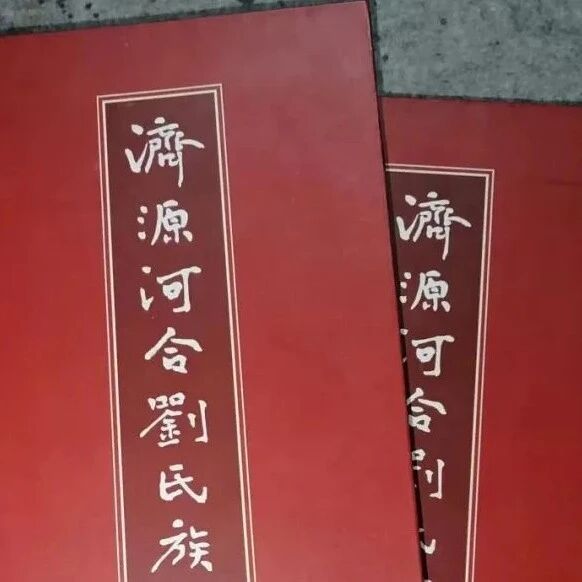 濟源河合劉氏族
濟源河合劉氏